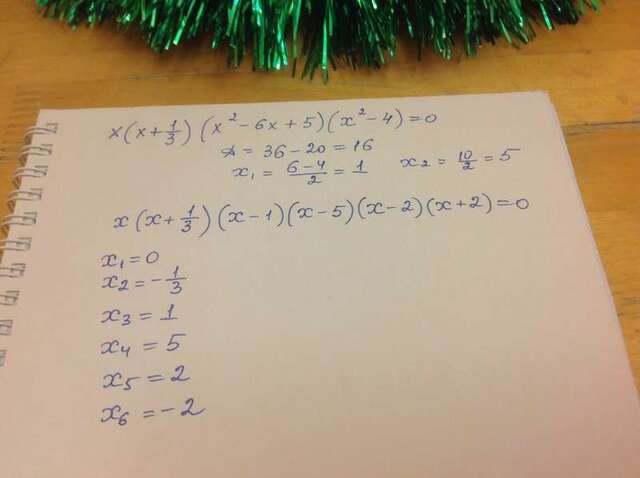 x(x+1/3)(x²-6x+5)(x²-4)=0
D=36-20=16
x₁=(6-4)/2=1 x₂=10/2=5
x(x+1/3)(x-1)(x-5)(x-2)(x+2)=0
x₁=0
x₂=-1/3
x₃=1
x₄=5
x₅=2
x₆=-2